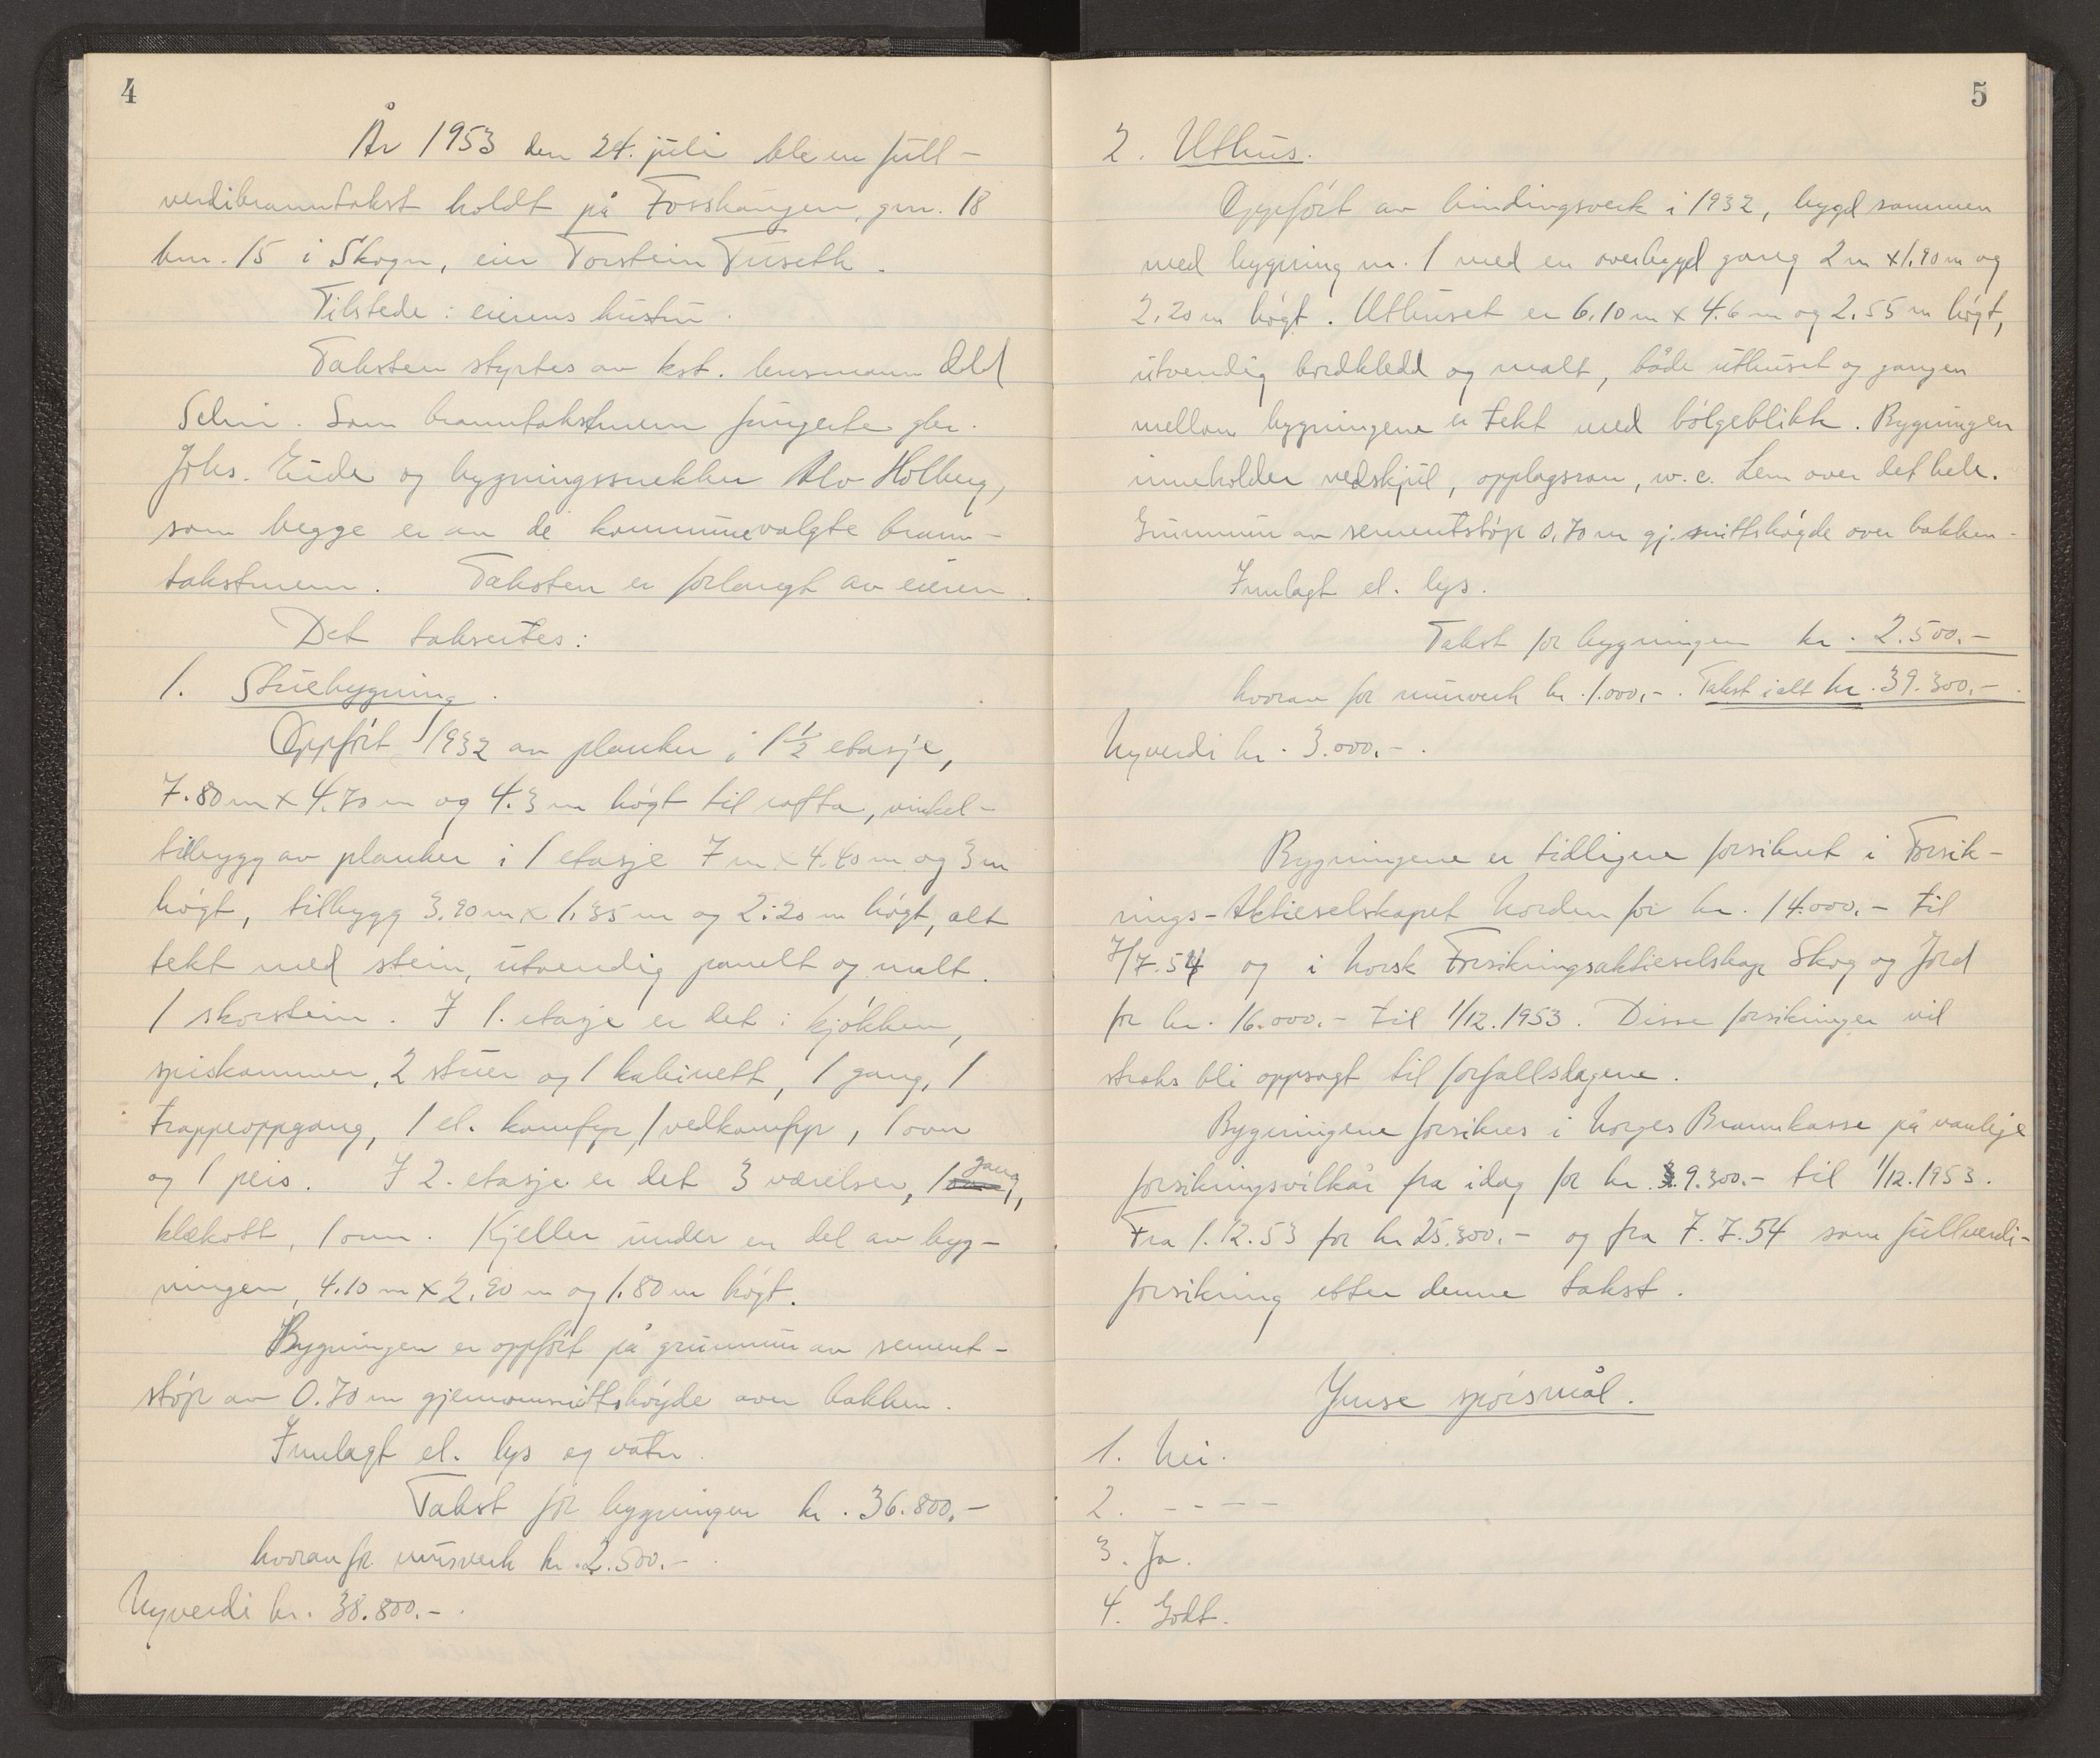 4
År 1953 den 24. juli ble en full-
verdibranntakst holdt på Fosshaugen, gnr. 18
bnr. 15 i Skogn, eier Torstein Tuseth.
Tilstede: eierens hustru.
Taksten styrtes av kst. lensmann Odd
Selni. Som branntakstmenn fungerte gbr.
Johs. Eide og bygningssnekker Alv Holberg,
som begge er av de kommunevalgte brann-
takstmenn. Taksten er forlangt av eieren.
Det taksertes:
1. Stuebygning.
Oppført 1932 av planker i 1 1/2 etasje,
7.80 m x 4.70 m og 4.3 m høgt til rafta, vinkel-
tilbygg av planker i 1 etasje 7 m x 4.40 m og 3 m
høgt, tilbygg 3.90 m x 1.35 m og 2.20 m høgt, alt
tekt med stein, utvendig panelt og malt.
1 skorstein. I 1. etasje er det: kjøkken,
spiskammer, 2 stuer og 1 kabinett, 1 gang, 1
trappeoppgang, 1 el. komfyr, 1 vedkomfyr, 1 ovn
og 1 peis. I 2. etasje er det 3 værelser, 1 gang,
klekott, 1 ovn. Kjeller under en del av byg-
ningen, 4.10 m x 2.90 m og 1.80 m høgt.
Bygningen er oppført på grunnmur av sement-
støp av 0.70 m gjennomsnittshøyde over bakken.
Innlagt el. lys og vatn.
Takst for bygningen kr. 36.800.-
hvorav for murverk kr. 2.500.-.
Nyverdi kr. 38.800.-.
5
2. Uthus.
Oppført av bindingsverk i 1932, bygd sammen
med bygning nr. 1 med en overbygd gang 2 m x 1.90 m og
2.20 m høgt. Uthuset er 6.10 m x 4.6 m og 2.55 m høgt,
utvendig bordkledd og malt, både uthuset og gangen
mellom bygningene er tekt med bølgeblikk. Bygningen
inneholder vedskjul, opplagsrom, w.c. Lem over det hele.
Grunnmur av sementstøp 0.70 m gj.snittshøgde over bakken.
Innlagt el. lys.
Takst for bygningen kr. 2.500.-
hvorav for murverk kr. 1.000.-. Takst i alt kr. 39.300.-.
Nyverdi kr. 3.000.-.
Bygningene er tidligere forsikret i Forsik-
rings-Aktieselskapet Norden for kr. 14.000.- til
7/7.54 og i Norsk Forsikringsaktieselskap Skog og Jord
for kr. 16.000.- til 1/12.1953. Disse forsikringer vil
straks bli oppsagt til forfallsdagene.
Bygningene forsikres i Norges Brannkasse på vanlige
forsikringsvilkår fra idag for kr. 9.300.- til 1/12.1953.
Fra 1.12.53 for kr 25.300.- og fra 7.7.54 som fullverdi-
forsikring etter denne takst.
Ymse spørsmål.
1. Nei.
2. - - - -
3. Ja.
4. Godt.